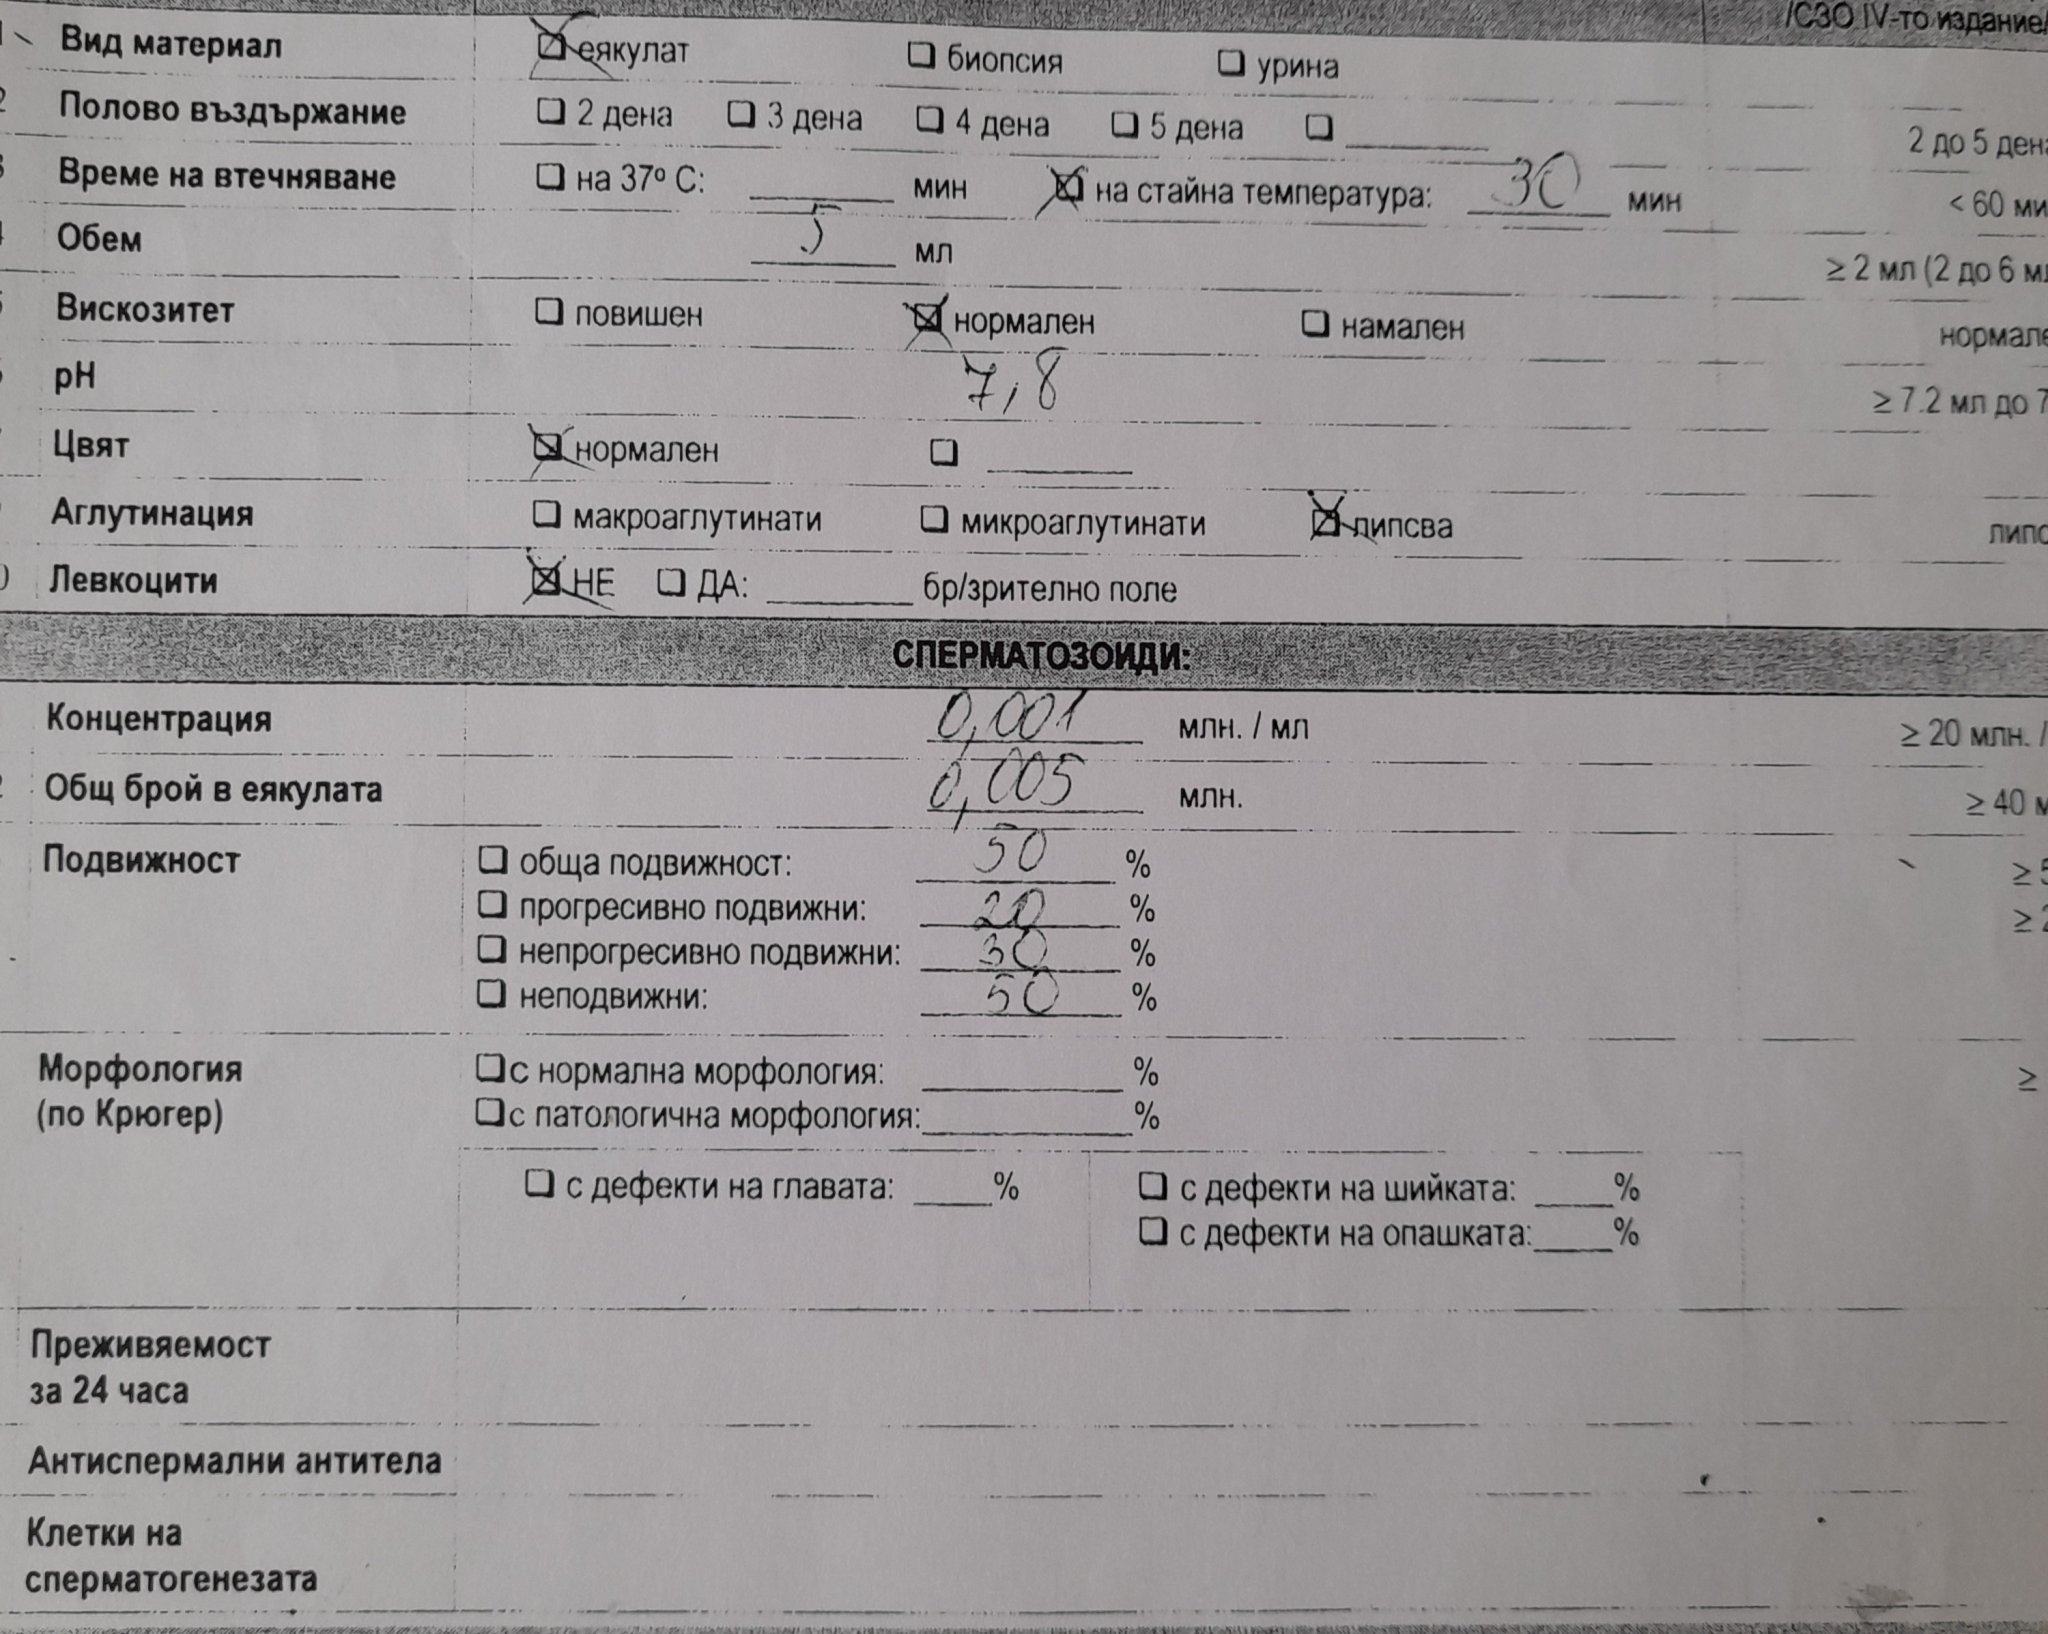 /СЗО IV-то издание/
Вид материал ☒ еякулат ☐ биопсия ☐ урина
2 Полово въздържание ☐ 2 дена ☐ 3 дена ☐ 4 дена ☐ 5 дена ☐ ______ 2 до 5 дена
3 Време на втечняване ☐ на 37º C: ______ мин ☒ на стайна температура: 30 мин < 60 ми
4 Обем 5 мл ≥ 2 мл (2 до 6 мл
5 Вискозитет ☐ повишен ☒ нормален ☐ намален нормале
pH 7,8 ≥ 7.2 мл до 7
Цвят ☒ нормален ☐ ______
Аглутинация ☐ макроаглутинати ☐ микроаглутинати ☒ липсва липс
0 Левкоцити ☒ НЕ ☐ ДА: ______ бр/зрително поле
СПЕРМАТОЗОИДИ:
Концентрация 0,001 млн. / мл ≥ 20 млн. /
2 Общ брой в еякулата 0,005 млн. ≥ 40 м
Подвижност ☐ обща подвижност: 50 % ≥ 5
☐ прогресивно подвижни: 20 % ≥ 2
☐ непрогресивно подвижни: 30 %
☐ неподвижни: 50 %
Морфология ☐ с нормална морфология: ______ % ≥
(по Крюгер) ☐ с патологична морфология: ______ %
☐ с дефекти на главата: ____ % ☐ с дефекти на шийката: ____ %
☐ с дефекти на опашката: ____ %
Преживяемост
за 24 часа
Антиспермални антитела
Клетки на
сперматогенезата